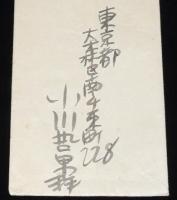 東京都
大森区南千束町228
小川哲